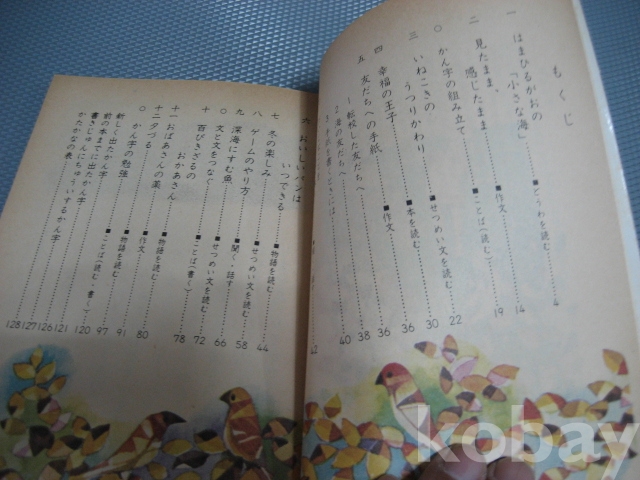 もくじ
一 はまひるがおの
「小さな海」 ■どうわを読む 4
14
二 見たまま、
感じたまま ■作文
■ことば(読む) 19
○ かん字の組み立て 22
三 いねこきの
うつりかわり ■せつめい文を読む 30
四 幸福の王子 ■本を読む 36
五 友だちへの手紙 ■作文 36
1 転校した友だちへ 38
友だちへ 40
六 おいしいパンは
いつできる 42
七 冬の楽しみ ■物語を読む 44
八 ゲームのやり方 ■せつめい文を読む 58
九 深海にすむ魚 ■聞く・話す
○ 文と文をつなぐ ■せつめい文を読む 66
十 百びきざるの
おかあさん ■ことば(書く) 72
78
十一 おばあさんの薬 ■物語を読む
十二 夕づる ■作文 80
○ かん字の勉強 ■物語を読む 91
■ことば(読む・書く) 97
新しく出たかん字 120
前の本までに出たかん字 121
書きじゅんにちゅういするかん字 126
かたかなの表 127
128
kobay